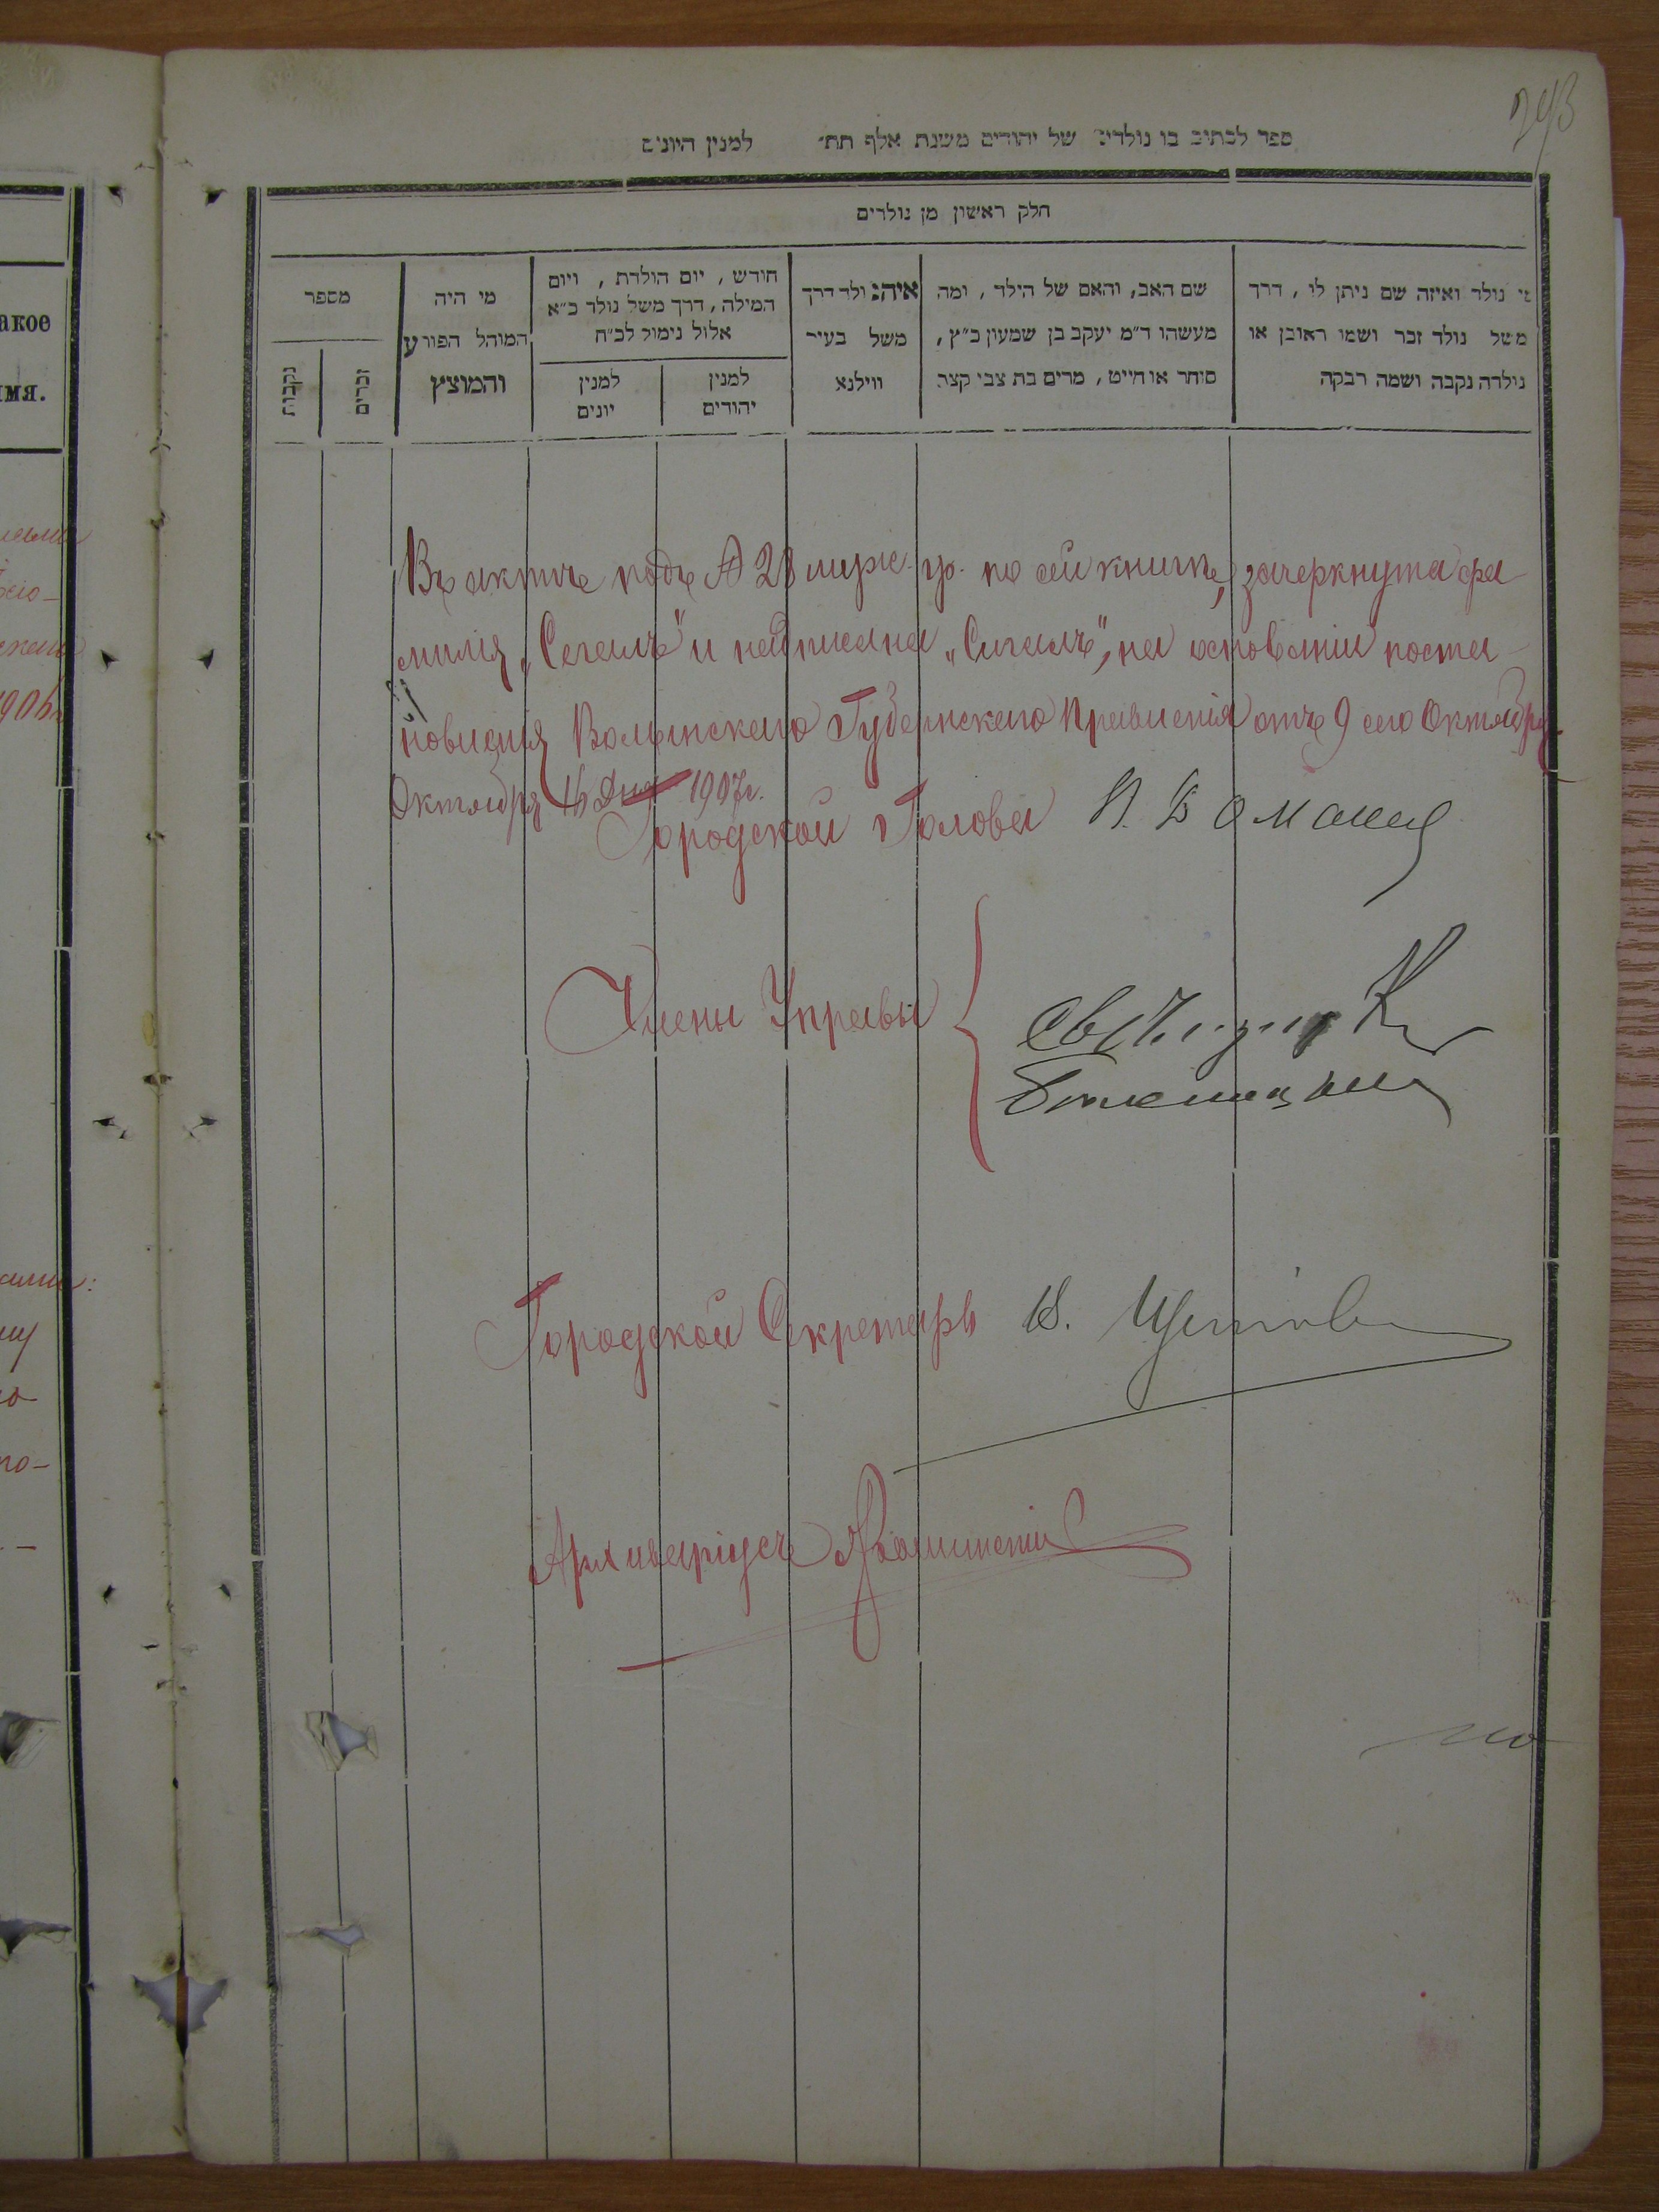 ספר לכתיב בו נולדים של יהודים משנת אלף תת׳ למנין היונים
חלק ראשון מן נולדים
מי נולד ואיזה שם ניתן לו, דרך
משל נולד זכר ושמו ראובן או
נולדה נקבה ושמה רבקה
שם האב, והאם של הילד, ומה
מעשהו ד״מ יעקב בן שמעון כ״ץ,
סוחר או חייט, מרים בת צבי קצב
איה נולד דרך
משל בעיר
ווילנא
חודש, יום הולדת, ויום
המילה, דרך משל נולד כ״א
אלול נימול לכ״ח
למנין
יהודים
למנין
יונים
מי היה
המוהל הפורע
והמוצץ
מספר
זכרים
נקבות
Въ актѣ подъ № 28 по сей книгѣ, зачеркнута фа
милія „Сегалъ" и надписана „Сигалъ", на основаніи поста
новленія Волынскаго Губернскаго Правленія отъ 9 сего Октября.
Октября 16 дня 1907 г.
Городской Голова
Члены Управы
Городской Секретарь
Архиваріусъ
акое
имя.